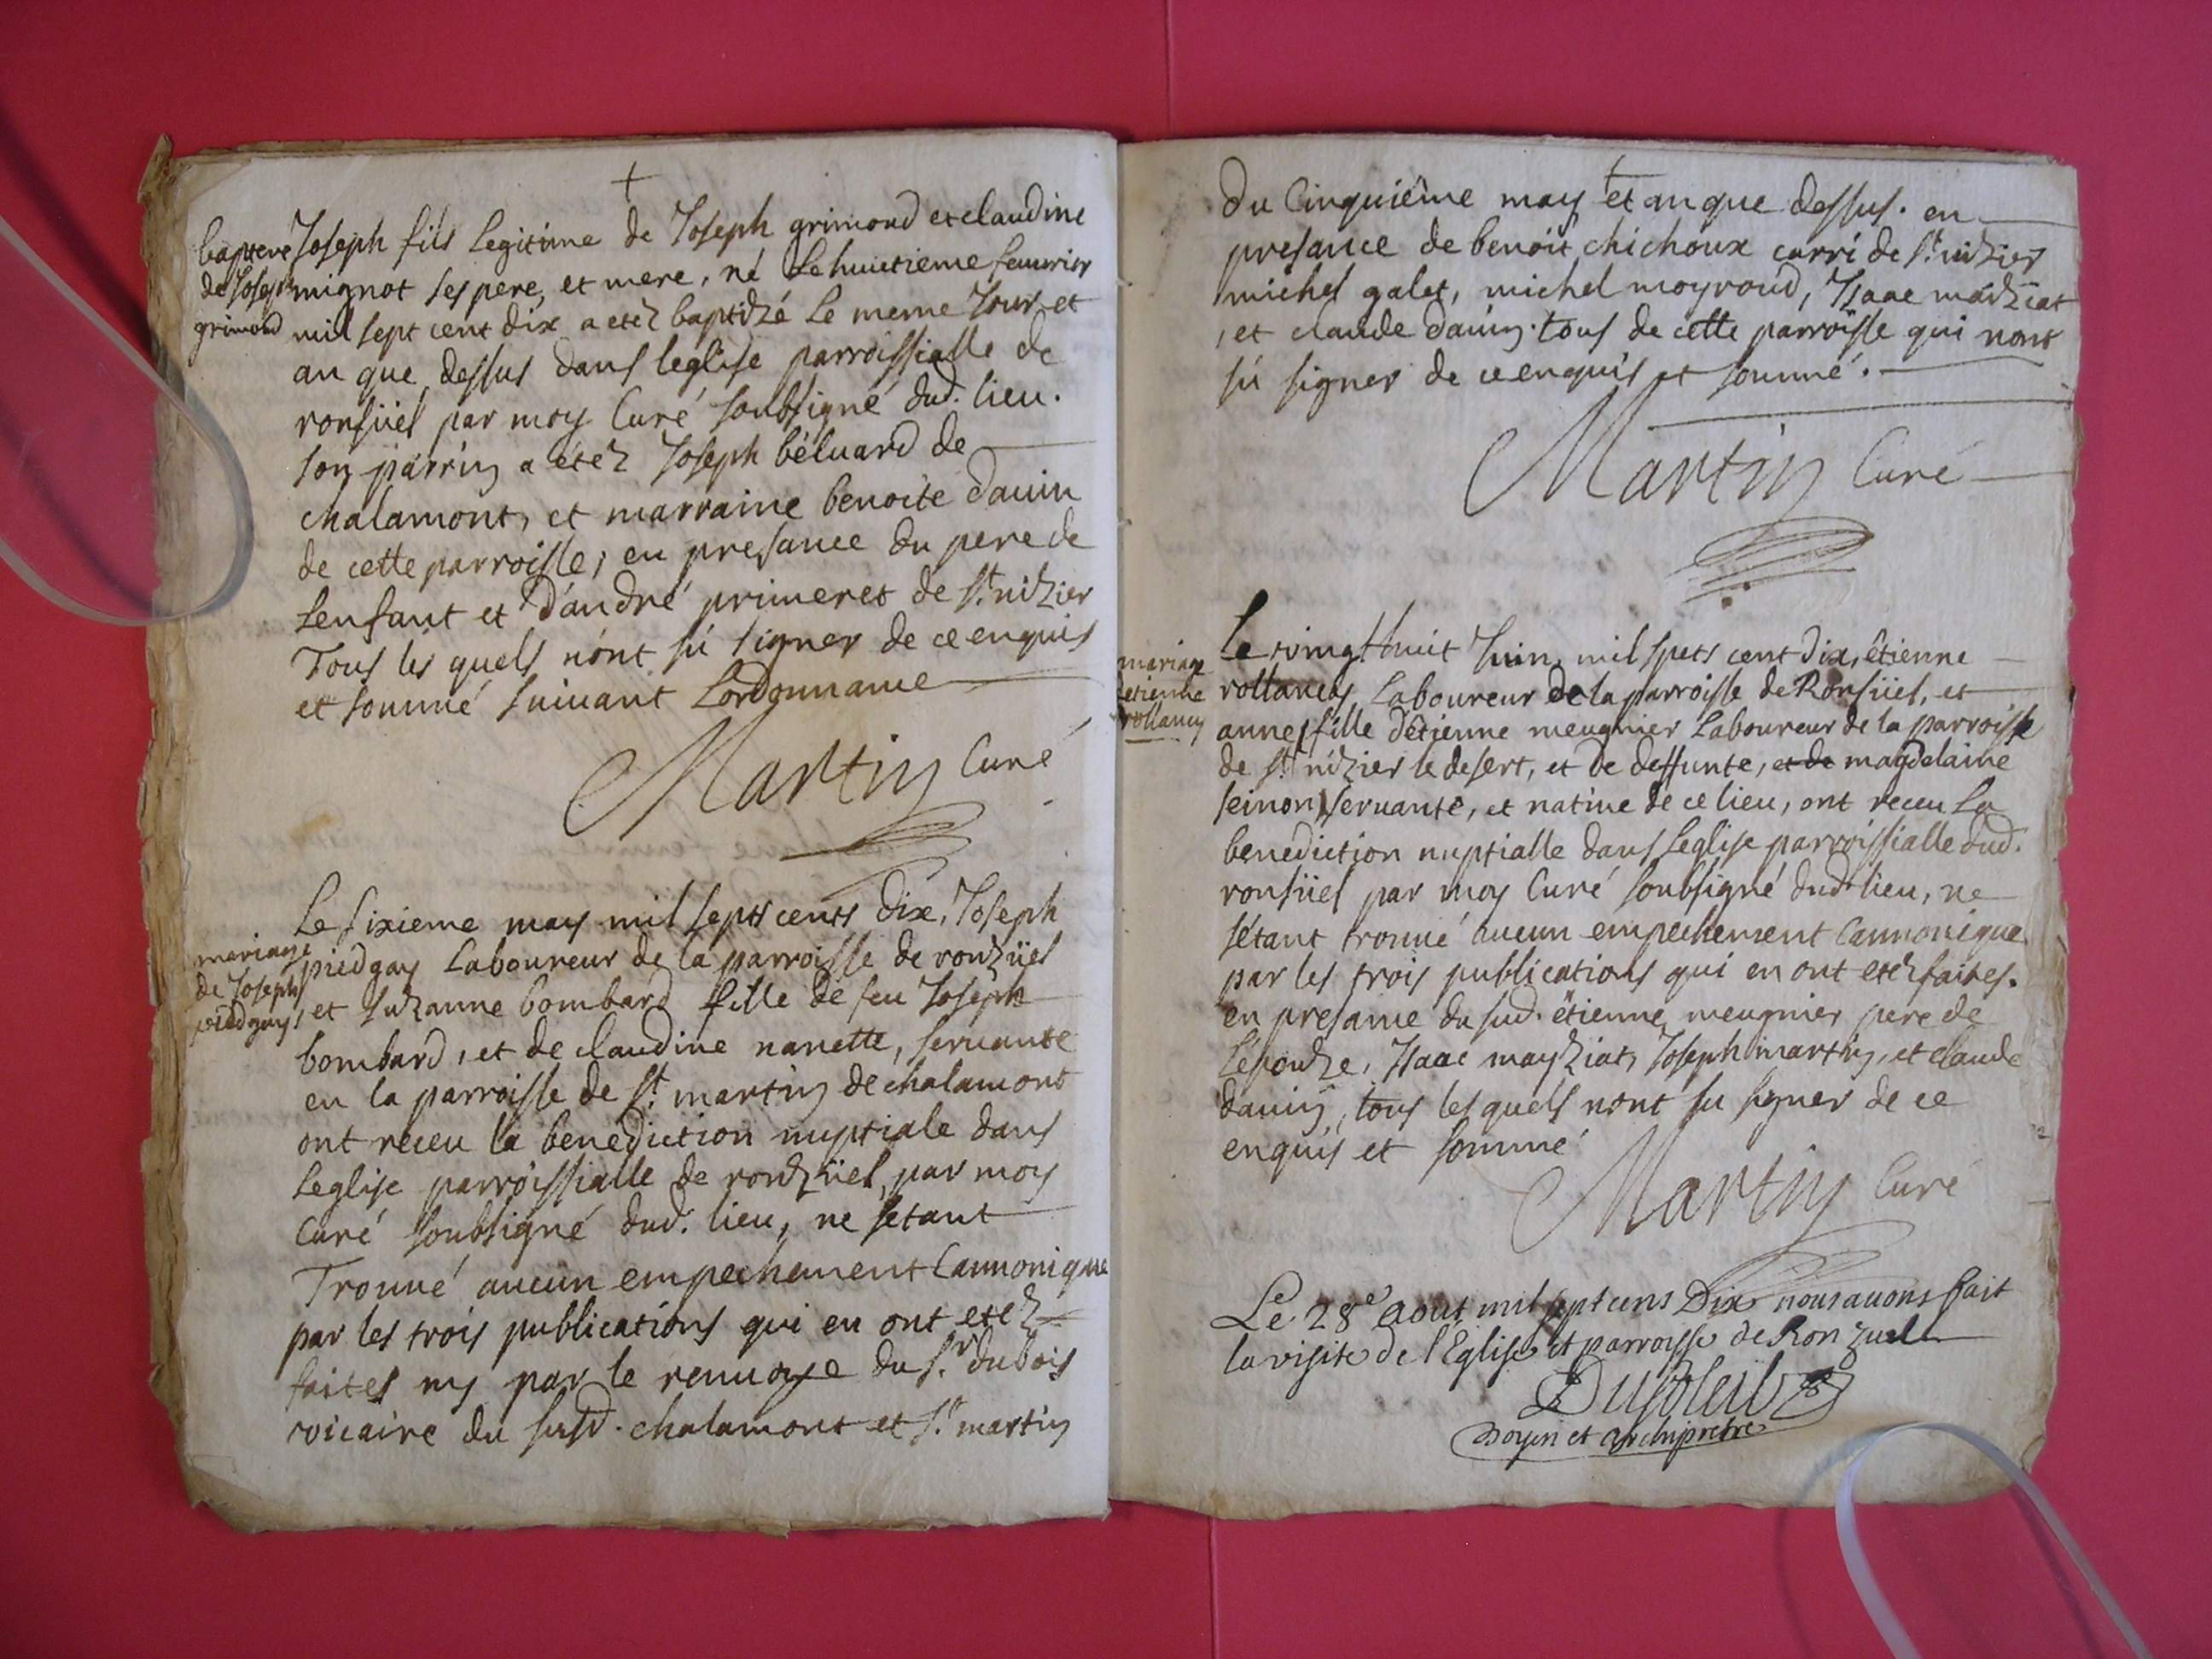 +
bapteme
de Joseph
grimoud
Joseph fils Legitime de Joseph grimoud et claudine
mignot ses pere, et mere, né Le huictieme feuvrier
mil sept cent dix a etez baptizé Le meme Jour et
an que dessus dans leglise parroissialle de
ronsüel par moy Curé soubsigné dud. lieu.
son parrin a étéz Joseph béluard de
chalamont, et marraine benoite dauin
de cette parroisse, en presance du pere de
Lenfant et d'andré primeret de St. nizier
Tous les quels n'ont sú signer de ce enquis
et sommé suiuant Lordonnance
Martin Curé
mariage
de Joseph
piedgay
Le sixieme may mil septs cents dix, Joseph
piedgay Laboureur de la parroisse de ronzüel
et suzanne bombard fille de feu Joseph
bombard, et de claudine nanette, seruante
en la parroisse de St. martin de chalamont
ont receu la benediction nuptiale dans
Leglise parroissialle de ronzüel, par moy
Curé soubsigné dud. lieu, ne setant
Trouué aucun empechement Cannonique
par les trois publications qui en ont etez
faites ny par le renuoye du Sr. dubois
vicaire du susd. chalamont et St. martin
+
du Cinquiéme may et an que dessus. en
presance de benoit chichoux curri de St. nizier
michel galet, michel moyroud, Isaac maiziat
, et claude dauin. tous de cette parroisse qui nont
sú signer de ce enquis et sommé.
Martin Curé
mariage
etienne
rollancy
Le vingt huit Juin mil spets cent dix, étienne
rollancy Laboureur de la parroisse de Ronsüel, et
anne fille détienne meugnier Laboureur de la parroisse
de St. nizier le desert, et de deffunte, et de magdelaine
seinon seruante, et natiue de ce lieu, ont receu La
benediction nuptialle dans Leglise parroissialle dud.
ronsüel par moy Curé soubsigné dud. lieu, ne
s'étant trouué aucun empechement Cannonique
par les trois publications qui en ont etéz faites.
en presance du sud. étienne meugnier pere de
Lépouze, Isaac mayziat, Joseph martin, et claude
dauin, tous les quels nont su signer de ce
enquis et sommé
Martin Curé
Le 28e Aout mil sept cens Dix nous auons fait
la visite de l'Eglise et parroisse de Ronzuel
Dusoleil
Doyen et archiprêtre